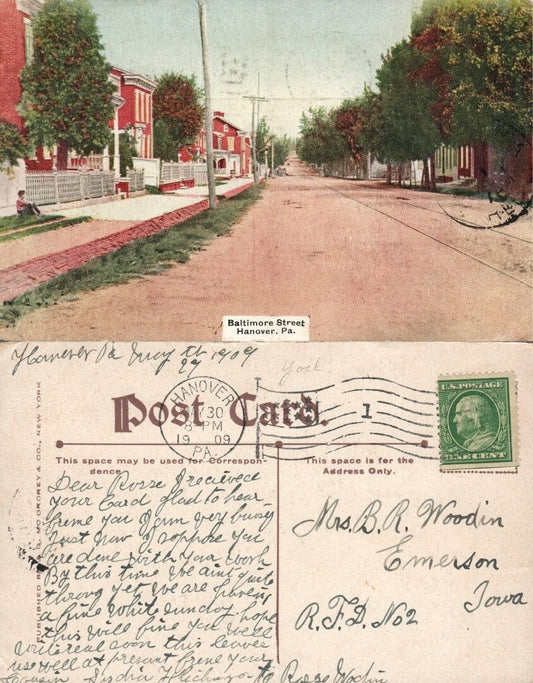 Baltimore Street
Hanover, Pa.
Hanover Pa May th 1909
29
York
Post Card.
HANOVER
30
8 PM
19 09
PA.
1
U.S. POSTAGE
ONE CENT
This space may be used for Correspon-
dence
This space is for the
Address Only.
PUBLISHED BY & CO., NEW YORK
Dear Rosse I recieved
Your Card glad to hear
frome you I am very busy
Just now I sopose you
are done with Your Work
By this time we aint quite
throug yet we are having
a fine White sunday hope
this will fine you well
write real soon this leaves
us well at present frome Your
Cousin
Mrs. B. R. Woodin
Emerson
Iowa
R.F.D. No 2
to Rosse Wodin